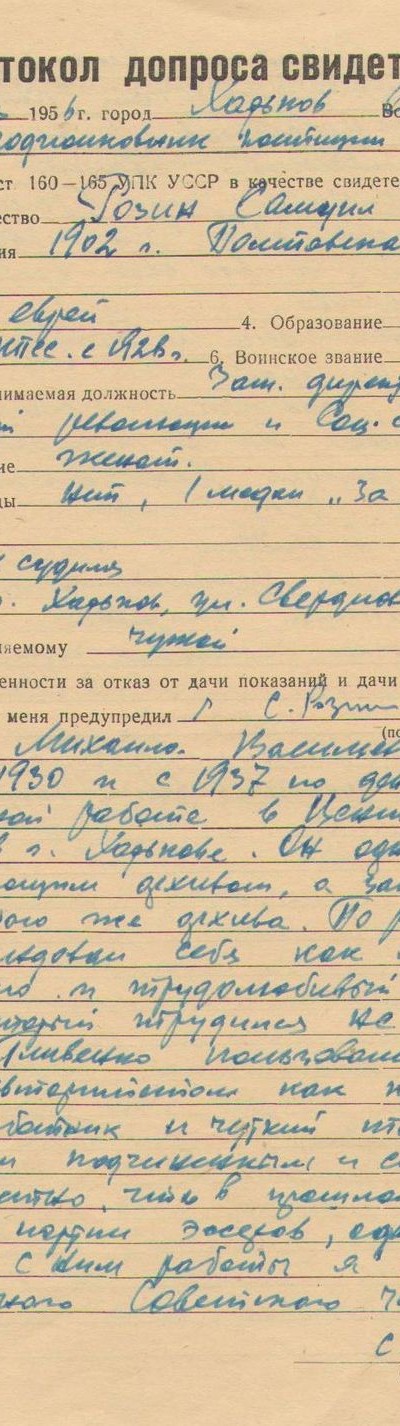 токол допроса свидет
1956 г. город Харьков Во
подполковник юстиции
ст 160—165 УПК УССР в качестве свидете
ество Розин Самуил
ия 1902 г. Полтавска
еврей 4. Образование
с 1928 г. 6. Воинское звание
нимаемая должность Зам. дирек
революции и Соц. с
ие женат.
ды нет, 1 медаль „За
судился
г. Харьков, ул. Свердлов
няемому чужой
енности за отказ от дачи показаний и дачи
меня предупредил С. Розин
(по
Михаило. Василье
1930 и с 1937 по
ной работе в Цент
в г. Харькове. Он од
ающим архивом, а за
ого же архива. По р
себя как
но и трудолюбивый
который трудился не
пользова
авторитетом как
ботник и чуткий
и подчиненным и с
естно, что в прошло
партии эсеров, од
с ним работы я
ного Советского че
С